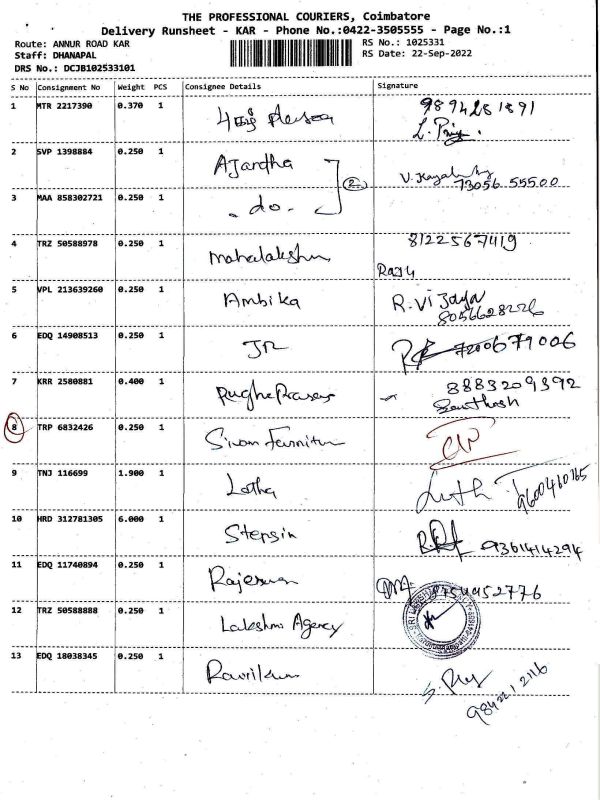 THE PROFESSIONAL COURIERS, Coimbatore
Delivery Runsheet - KAR - Phone No.:0422-3505555 - Page No.:1
Route: ANNUR ROAD KAR RS No.: 1025331
Staff: DHANAPAL RS Date: 22-Sep-2022
DRS No.: DCJB102533101
S No Consignment No Weight PCS Consignee Details Signature
1 MTR 2217390 0.370 1 9894281891
2 SVP 1398884 0.250 1 Ajantha 73056 55500
3 MAA 858302721 0.250 1 - do - 2
4 TRZ 50588978 0.250 1 Mahalakshmi 8122567419
Raju
5 VPL 213639260 0.250 1 Ambika R. Vijaya
8056628226
6 EDQ 14908513 0.250 1 JR 7200679006
7 KRR 2580881 0.400 1 8883209392
Santhosh
8 TRP 6832426 0.250 1 Sivam Furniture
9 TNJ 116699 1.900 1 Latha Latha 9600460765
10 HRD 312781305 6.000 1 Stepsin 9361414294
11 EDQ 11740894 0.250 1 Rajeswari
12 TRZ 50588888 0.250 1 Lakshmi Agency
13 EDQ 18038345 0.250 1 Ravikum
9842212116